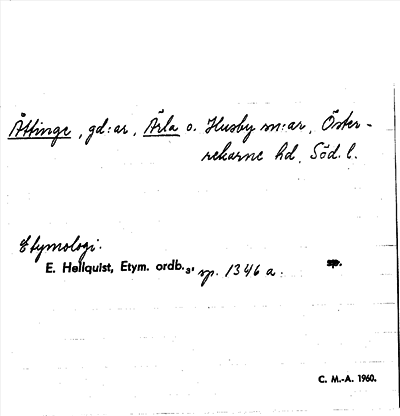 Åttinge, gd:ar, Ärla o. Husby sn:ar, Öster-
rekarne hd, Söd. l.
Etymologi.
E. Hellquist, Etym. ordb.₃, sp. 1346 a.
sp.
C. M.-A. 1960.